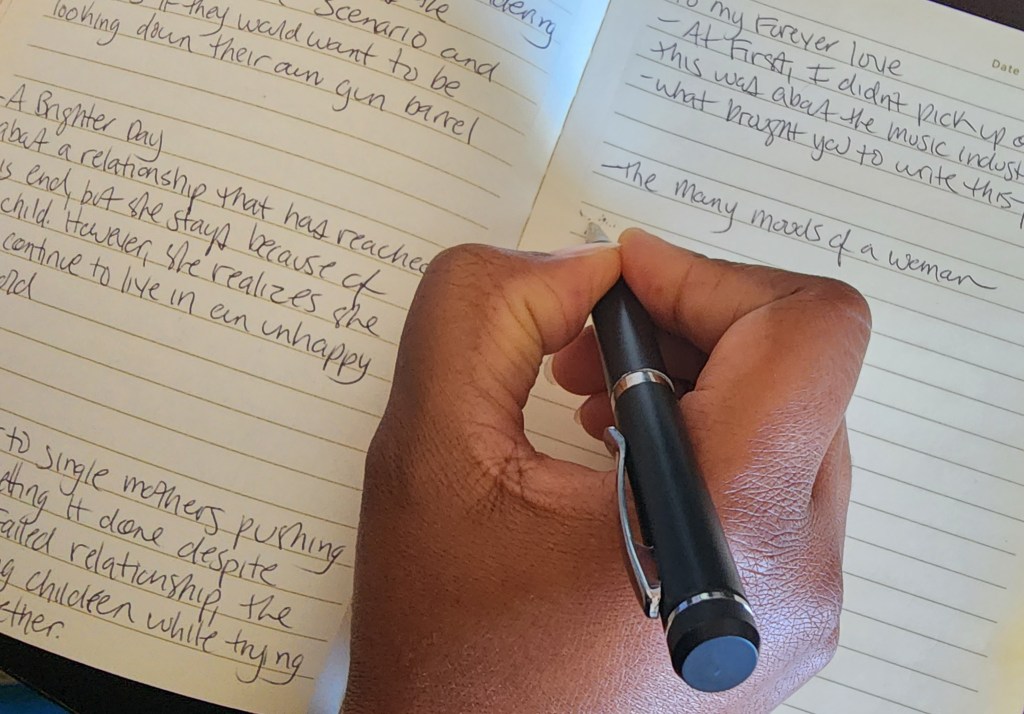 the
Scenario and
if they would want to be
looking down their own gun barrel
-A Brighter Day
about a relationship that has reached
end, but she stays because of
child. However, she realizes she
continue to live in an unhappy
to single mothers pushing
it done despite
failed relationship, the
children while trying
to my Forever love
- At First, I didn't pick up
this was about the music
- what brought you to write this
-the many moods of a woman
Date